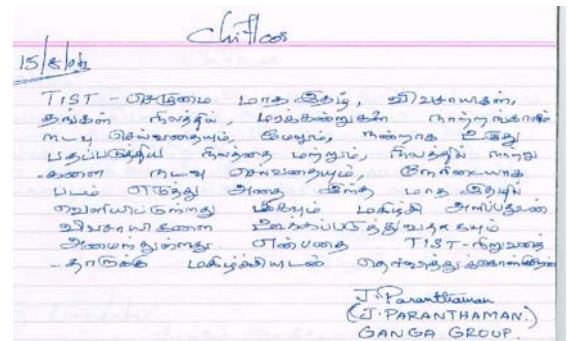 Chittoor
15/8/04
TIST - செழுமை மாத இதழ், விவசாயிகள்,
தங்கள் நிலத்தில், மரக்கன்றுகள் நாற்றங்கால்
நடவு செய்வதையும், மேலும், நன்றாக உழுது
பதப்படுத்திய நிலத்தை மற்றும், நிலத்தில் நாறறு
-களை நடவு செய்வதையும், நேரிடையாக
படம் எடுத்து அதை இந்த மாத இதழில்
வெளியிட்டுள்ளது மிகவும் மகிழ்ச்சி அளிப்பதுடன்
விவசாயிகளை ஊக்கப்படுத்துவதாகவும்
அமைந்துள்ளது. என்பதை TIST-நிறுவனத்
-தாருக்கு மகிழ்ச்சியுடன் தெரிவித்துக்கொள்கிறேன்
J. Paranthaman
(J. PARANTHAMAN.)
GANGA GROUP.